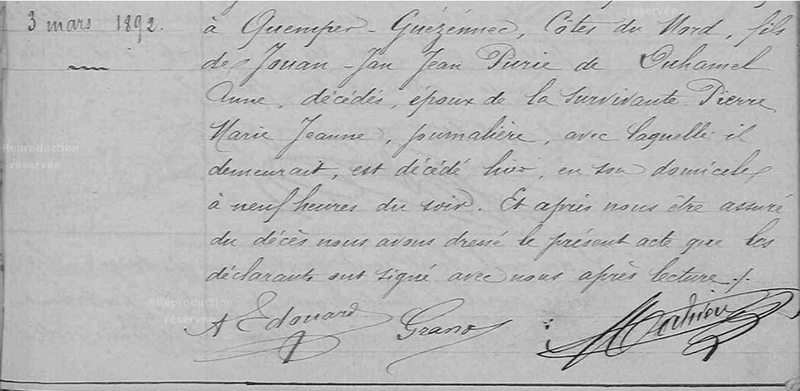 3 mars 1892.
à Quemper-Guézennec, Côtes du Nord, fils
de Jouan-Jan Jean Purie de Duhamel
Anne, décédés, époux de la survivante Pierre
Marie Jeanne, journalière, avec laquelle il
demeurait, est décédé hier, en son domicile
à neuf heures du soir. Et après nous être assuré
du décès nous avons dressé le présent acte que les
déclarants ont signé avec nous après lecture ./.
A Edouard Grand
Reproduction
réservée
Reproduction
réservée
réservée